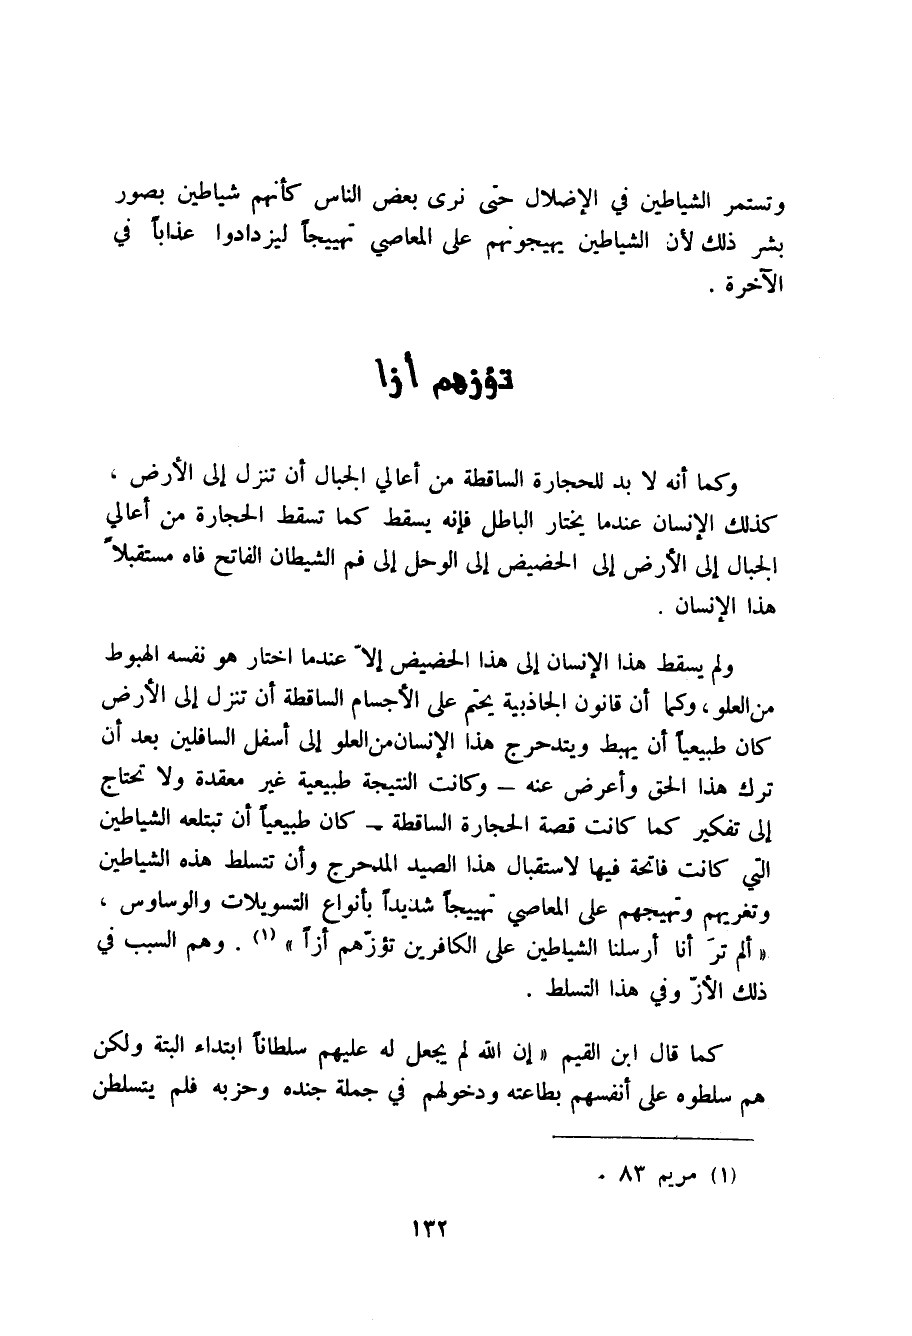 وتستمر الشياطين في الإضلال حتّى نرى بعض الناس كأنهم شياطين بصور
بشر ذلك لأن الشياطين يهيجونهم على المعاصي تهييجاً ليزدادوا عذاباً في
الآخرة .
تؤزهم أزا
وكما أنه لا بد للحجارة الساقطة من أعالي الجبال أن تنزل إلى الأرض ،
كذلك الإنسان عندما يختار الباطل فإنه يسقط كما تسقط الحجارة من أعالي
الجبال إلى الأرض إلى الحضيض إلى الوحل إلى فم الشيطان الفاتح فاه مستقبلاً
هذا الإنسان .
ولم يسقط هذا الإنسان إلى هذا الحضيض إلاّ عندما اختار هو نفسه الهبوط
من العلو ، وكما أن قانون الجاذبية يحتّم على الأجسام الساقطة أن تنزل إلى الأرض
كان طبيعياً أن يهبط ويتدحرج هذا الإنسان من العلو إلى أسفل السافلين بعد أن
ترك هذا الحق وأعرض عنه – وكانت النتيجة طبيعية غير معقدة ولا تحتاج
إلى تفكير كما كانت قصة الحجارة الساقطة – كان طبيعياً أن تبتلعه الشياطين
التّي كانت فاتحة فيها لاستقبال هذا الصيد المدحرج وأن تتسلط هذه الشياطين
وتغريهم وتهيجهم على المعاصي تهييجاً شديداً بأنواع التسويلات والوساوس ،
« ألم ترَ أنا أرسلنا الشياطين على الكافرين تؤزّهم أزاً » (١) . وهم السبب في
ذلك الأزّ وفي هذا التسلط .
كما قال ابن القيم « إن الله لم يجعل له عليهم سلطاناً ابتداء البتة ولكن
هم سلطوه على أنفسهم بطاعته ودخولهم في جملة جنده وحزبه فلم يتسلطن
(١) مريم ٨٣ .
١٣٢